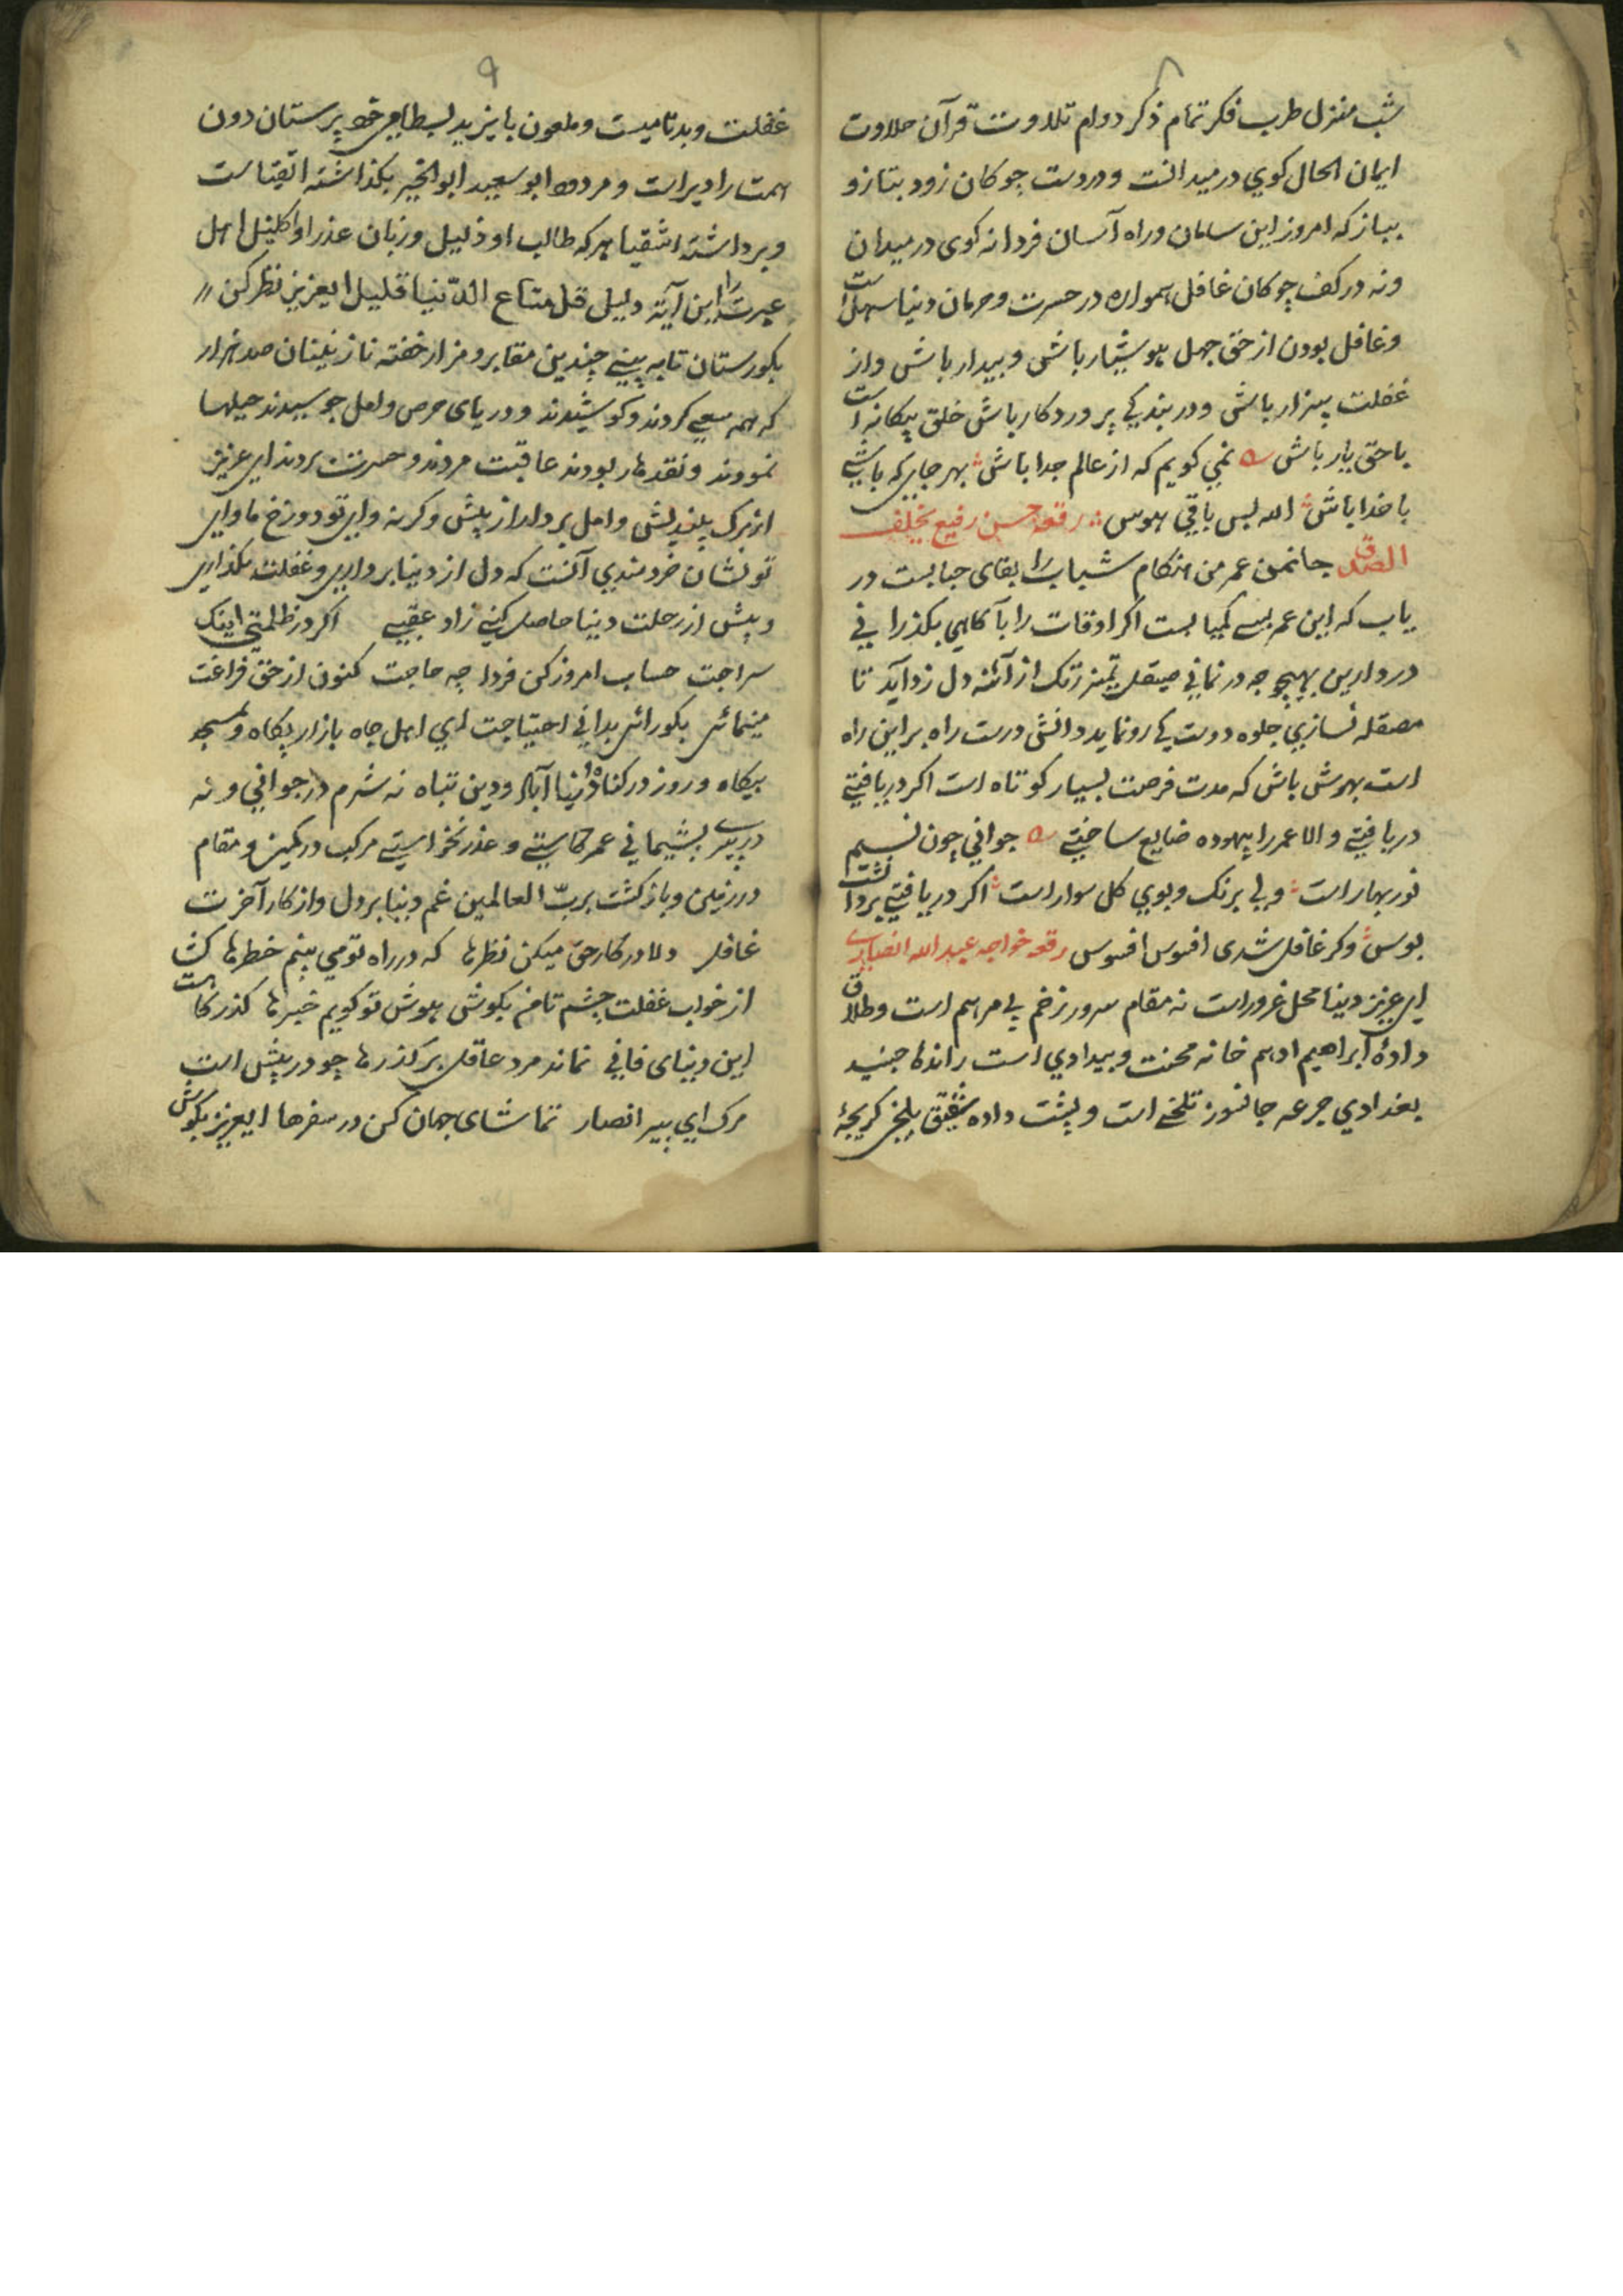 ۸
شب منزل طرب فکر تمام ذکر دوام تلاوت قرآن حلاوت
ایمان الحال کوي در میدانست و در دست چوکان زود بتاز و
بباز که امروز این سامان و راه آسان فردا نه کوی در میدان
و نه در کف چوکان غافل همواره در حسرت و حرمان دنیا سهل است
و غافل بودن از حق جهل هوشیار باش و بیدار باش و از
غفلت بیزار باش و در بندکي پروردکار باش خلق بیکانه است
با حق یار باش نمي کویم که از عالم جدا باش بهر جایي که باشي
با خدا باش الله بس باقي هوس رقعه حسن رفیع بخلف
الصدق جانمن عمر من هنکام شباب را بقای حبابست در
یاب که این عمر بسے کمیابست اکر اوقات را باکاهي بکذراني
در دارین بهیچوجه در نماني صیقل تمیز زنک از آئنه دل زداید تا
مصقله نسازي جلوه دوست کے رو نماید دانش درست راه بر این راه
است بهوش باش که مدت فرصت بسیار کوتاه است اکر دریافتے
دریافتے و الا عمر را بیهوده ضایع ساختے جواني چون نسیم
نوربهار است ولي برنک و بوي کل سوار است اکر دریافتے بر دانشت
بوس وکر غافل شدی افسوس افسوس رقعه خواجه عبد الله انصاری
اي عزیز دنیا محل غرور است نه مقام سرور زخم بے مرهم است و طلاق
دادۀ ابراهیم ادهم خانه محنت و بیدادي است راندۀ جنید
بغدادي جرعه جانسوز تلخے است و پشت داده شقیق بلخي کریجۀ
۹
غفلت و بدنامیست و ملعون بایزید بسطامي خود پرستان دون
همت را دیر است و مردود ابو سعید ابو الخیر بکذاشته اتقیا است
و برداشته اشقیا هر که طالب او ذلیل و زبان عذر او کلیل اهل
عبرت را این آیة دلیل قل متاع الدّنیا قلیل ایعزیز نظر کن
بکورستان تا به بینے چندین مقابر و مزار خفته نازنینان صد هزار
که همه سعے کردند و کوشیدند و در یای حرص و امل جوسیدند حیلها
نمودند و نقدها ربودند عاقبت مردند و حسرت بردند اي عزیز
از مرک بیندیش و امل بردار از پیش و کرنه واي تو دوزخ ماواي
تو نشان خردمندي آنست که دل از دنیا برداري و غفلت بکذاري
و پیش از رحلت دنیا حاصل کنے زاد عقبے اکر در ظلمتي اینک
سراجت حساب امروز کن فردا چه حاجت کنون از حق فراغت
مینمائی بکور ائی بداني احتیاجت اي اهل جاه بازار پکاه و بمسجد
بیکاه و روز در کناه دنیا آباد و دین تباه نه شرم در جواني و نه
در پیری پشیماني عمر کاستے و عذر نخواستے مرکب در کمین و مقام
در زمین و بازکشت بربّ العالمین غم دنیا بر دل و از کار آخرت
غافل دلا در کار حق میکن نظرها که در راه تو مي بینم خطرها کشا
از خواب غفلت چشم تا من بکوش هوش تو کویم خبرها کذرکاهست
این دنیای فاني نماند مرد عاقل بر کذرها چو در پیش است
مرک اي پیر انصار تماشای جهان کن در سفرها ایعزیز بکوش